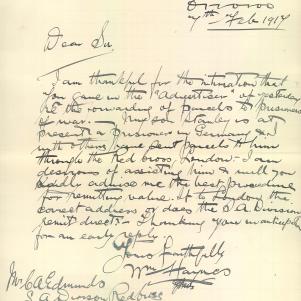 7th Feb 1917
Dear Sir
I am thankful for the intimation that
you gave in the "Advertiser" of yesterday
re the forwarding of parcels to prisoners
of war. My son Stanley is at
present a prisoner in Germany &
with others have sent parcels to him
through the Red Cross, London - I am
desirous of assisting him & will you
kindly advise me the best procedure
for remitting value. If to London the
correct address or does the S A Division
permit direct - Thanking you in anticipation
for an early reply.
Yours faithfully
Wm Haynes
Mr C A Edmunds
S. A. Division Red Cross